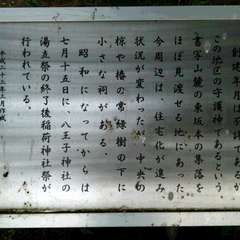 創建年月は不詳であるが
この地区の守護神であるという
書写山麓の東坂本の集落を
ほぼ見渡せる地にあった
今周辺は、住宅化が進み
状況が変わったが、中央の
椋や椿の常緑樹の下に
小さな祠がある。
昭和になってからは
七月十五日に、八王子神社の
湯立祭の終了後稲荷神社祭が
行われている。
平成二十三年三月作成